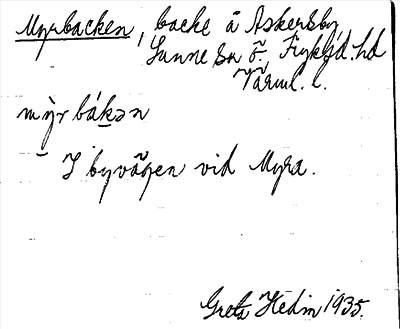 Myrbacken, backe å Askersby
Sunne sn ö. Fryksd. hd
Värml. l.
mỳr bák̠ən
I byvägen vid Myra.
Greta Hedin 1935.